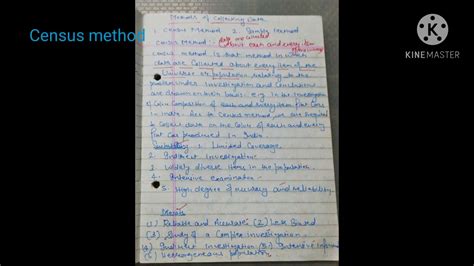 Census method
KINEMASTER
Methods of Collecting Data
1. Census Method 2. Sample Method
Census Method
data are collected
about each and every item
Census method is that method in which
data are collected about every item of the
universe or population relating to the
problem under investigation and conclusions
are drawn on their basis. e.g. In the investigation
of Color Composition of each and every item Fiat Cars
in India. As to Census method, we are required
to Collect data on the Colour of each and every
fiat Car produced in India.
Suitability 1. Limited Coverage.
2. Indirect Investigation
3. Widely diverse items in the population.
4. Intensive examination
5. High degree of accuracy and reliability
Merits
(1) Reliable and Accurate (2) Less Biased
(3) Study of a Complex investigation
(4) Indirect Investigation (5) Intensive
(6) Heterogeneous population